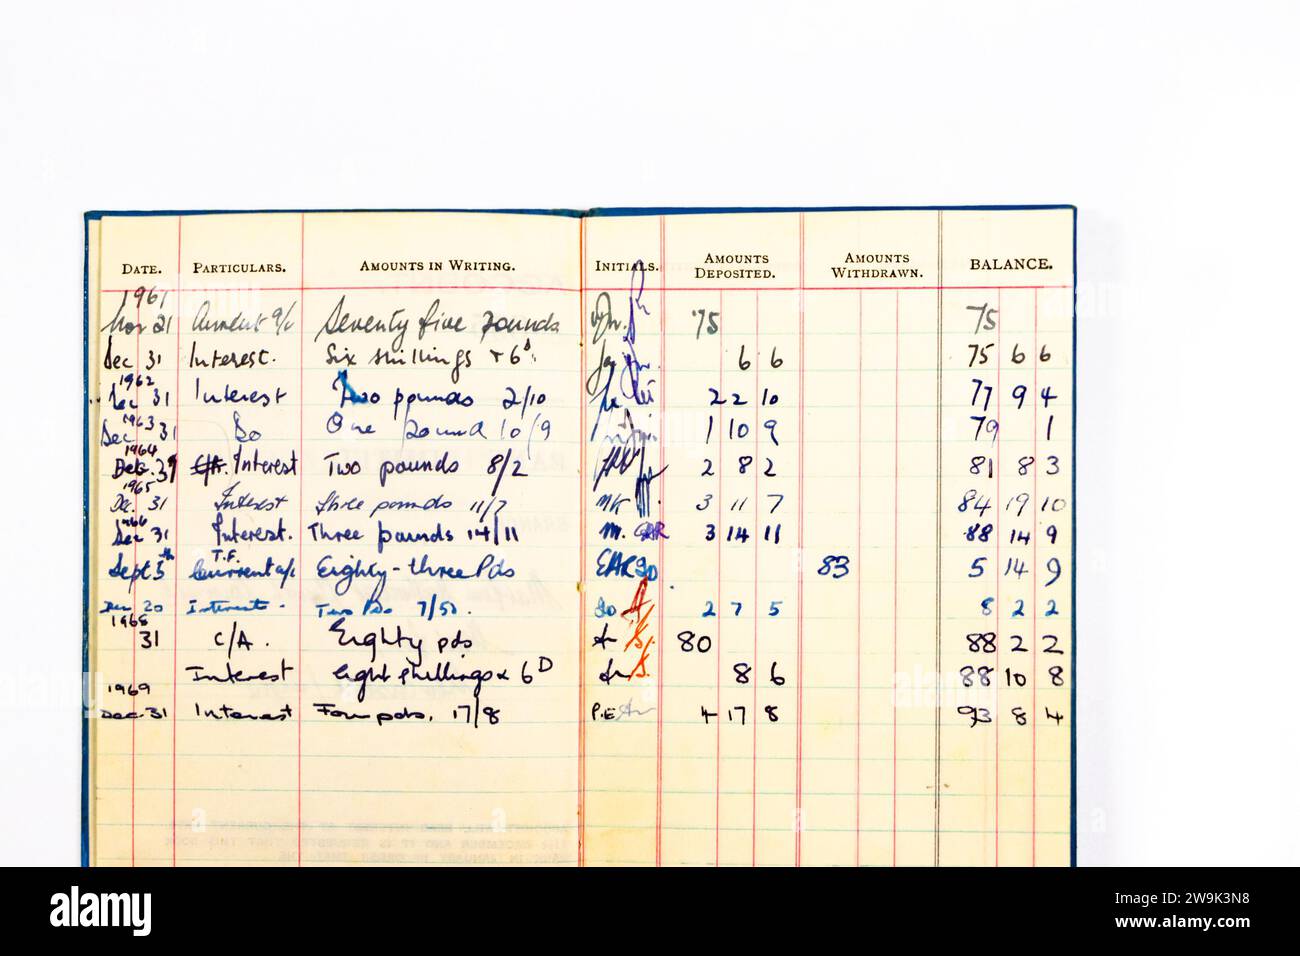 DATE. PARTICULARS. AMOUNTS IN WRITING. INITIALS. AMOUNTS DEPOSITED. AMOUNTS WITHDRAWN. BALANCE.
1961
Nov 21 Current a/c Seventy five pounds 75 75
Dec 31 Interest. Six shillings + 6d. 6 6 75 6 6
1962
Dec 31 Interest Two pounds 2/10 2 2 10 77 9 4
1963
Dec 31 Do One pound 10/9 1 10 9 79 1
1964
Dec. 31 Interest Two pounds 8/2 2 8 2 81 8 3
1965
Dec. 31 Interest three pounds 11/7 MK 3 11 7 84 19 10
1966
Dec 31 Interest. Three pounds 14/11 M. GAR 3 14 11 88 14 9
Sept 5th T.F. Current a/c Eighty-three Pds EAR 83 5 14 9
Dec 20 Interest - Two Pds 7/5d. 2 7 5 8 2 2
1968
31 C/A. Eighty pds 80 88 2 2
Interest eight shillings & 6D 8 6 88 10 8
1969
Dec. 31 Interest Four pds. 17/8 P.E 4 17 8 93 8 4
alamy
Image ID: 2W9K3N8
www.alamy.com